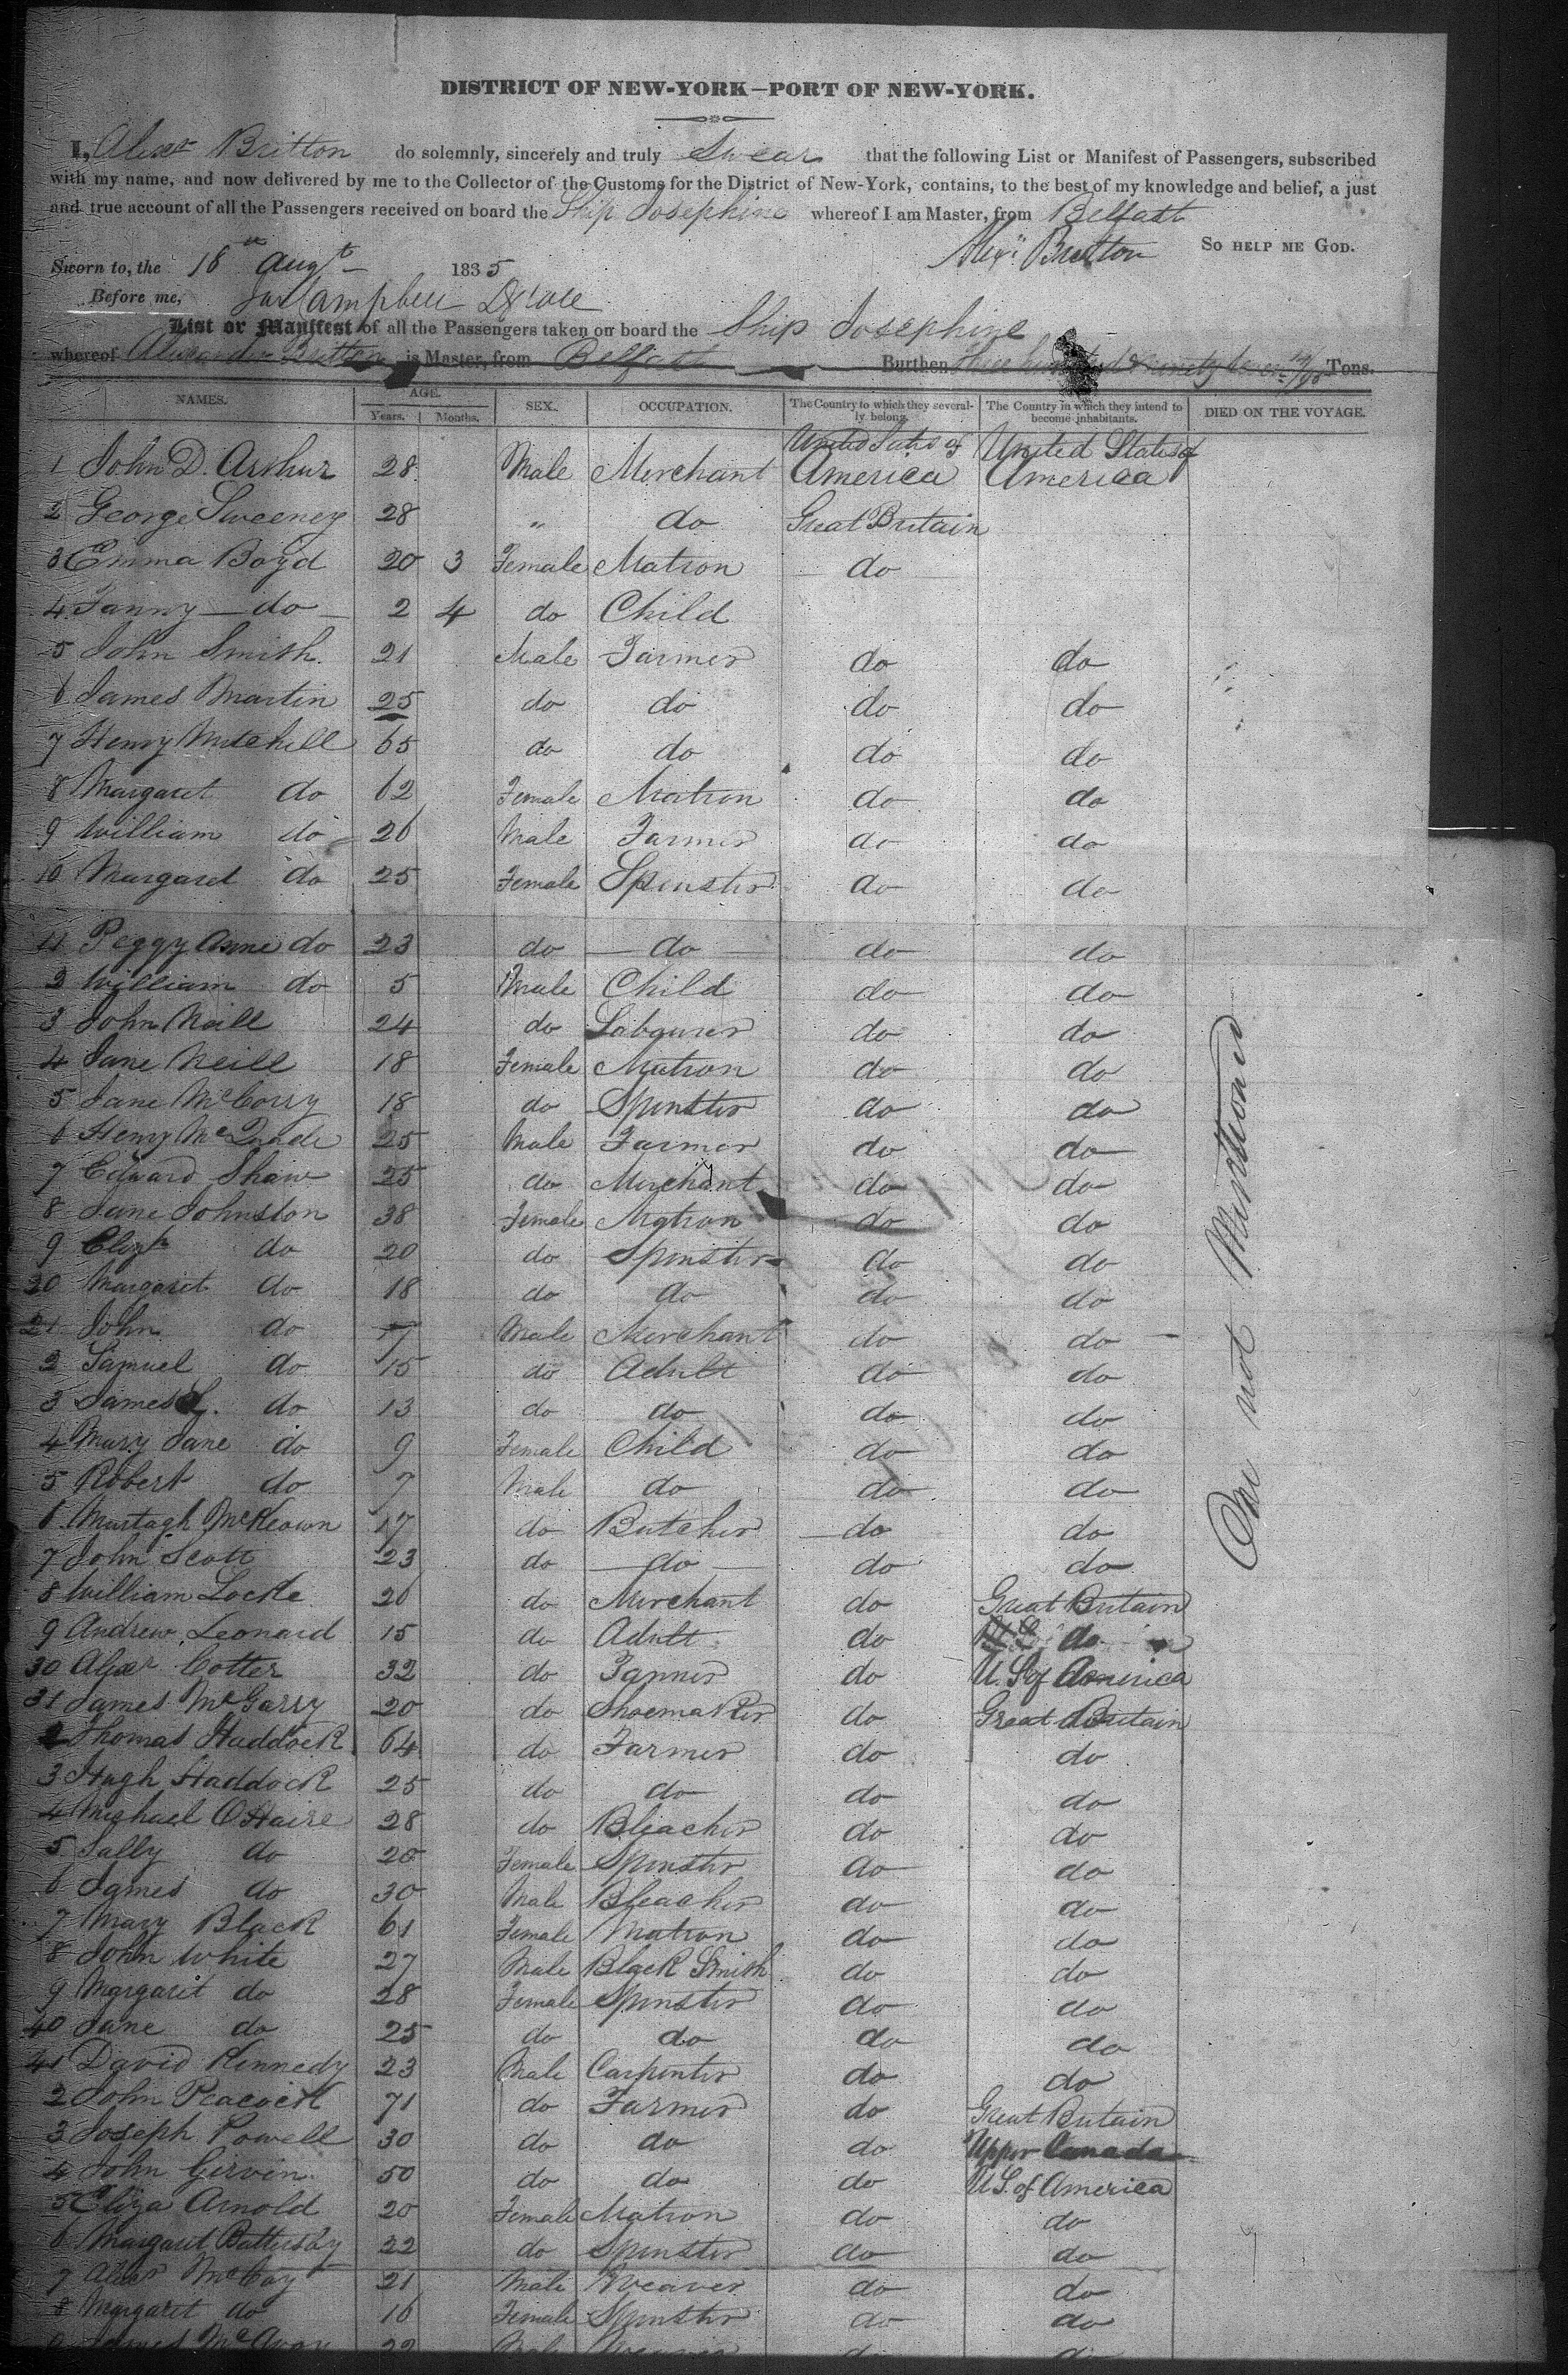 DISTRICT OF NEW-YORK—PORT OF NEW-YORK.
I, Alexr Britton do solemnly, sincerely and truly Swear that the following List or Manifest of Passengers, subscribed
with my name, and now delivered by me to the Collector of the Customs for the District of New-York, contains, to the best of my knowledge and belief, a just
and true account of all the Passengers received on board the Ship Josephine whereof I am Master, from Belfast
Alexr Britton SO HELP ME GOD.
Sworn to, the 18th Augt 1835
Before me, Campbell
List or Manifest of all the Passengers taken on board the Ship Josephine
whereof Alexander Britton is Master, from Belfast Burthen Three hundred & ninety Tons.
NAMES. AGE. Years. Months. SEX. OCCUPATION. The Country to which they severally belong. The Country in which they intend to become inhabitants. DIED ON THE VOYAGE.
1 John D. Arthur 28 Male Merchant United States of America United States of America
2 George Sweeney 28 " do Great Britain
3 Emma Boyd 20 3 Female Matron do
4 Fanny do 2 4 do Child
5 John Smith 21 Male Farmer do do
6 James Martin 25 do do do do
7 Henry Mitchell 65 do do do do
8 Margaret do 62 Female Matron do do
9 William do 26 Male Farmer do do
10 Margaret do 25 Female Spinster do do
11 Peggy Anne do 23 do do do do
2 William do 5 Male Child do do
3 John Neill 24 do Labourer do do
4 Jane Neill 18 Female Matron do do
5 Jane McCorry 18 do Spinster do do
6 Henry 25 Male Farmer do do
7 Edward Shaw 25 do Merchant do do
8 Jane Johnston 38 Female Matron do do
9 Elizth do 20 do Spinster do do
20 Margaret do 18 do do do do
21 John do Male Merchant do do
2 Samuel do 15 do Adult do do
3 James do 13 do do do do
4 Mary Jane do 9 Female Child do do
5 Robert do 7 Male do do do
6 Murtagh McKeown 17 do Butcher do do
7 John Scott 23 do do do do
8 William Locke 26 do Merchant do Great Britain
9 Andrew Leonard 15 do Adult do do
30 Alexr Cotter 32 do Tanner do U.S. of America
31 James McGarry 20 do Shoemaker do Great Britain
2 Thomas Haddock 64 do Farmer do do
3 Hugh Haddock 25 do do do do
4 Michael O'Haire 28 do Bleacher do do
5 Sally do 20 Female Spinster do do
6 James do 30 Male Bleacher do do
7 Mary Black 61 Female Matron do do
8 John White 27 Male Black Smith do do
9 Margaret do 28 Female Spinster do do
40 Jane do 25 do do do do
41 David Kennedy 23 Male Carpenter do do
2 John Peacock 71 do Farmer do Great Britain
3 Joseph Powell 30 do do do Upper Canada
4 John Girvin 50 do do do U.S. of America
5 Eliza Arnold 20 Female Matron do do
6 Margaret Battersby 22 do Spinster do do
7 Alexr McCay 21 Male Weaver do do
8 Margaret do 16 Female Spinster do do
9 James 22 Male Weaver do do
One not Mentioned